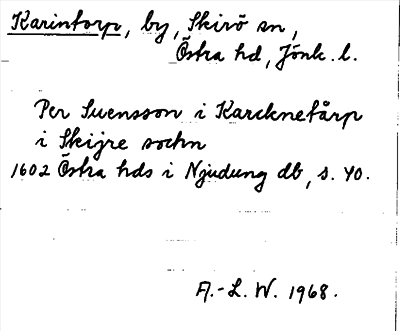 Karintorp, by, Skirö sn,
Östra hd, Jönk. l.
Per Suensson i Karcknetårp
i Skijre sochn
1602 Östra hds i Njudung db, s. 40.
A.-L. W. 1968.